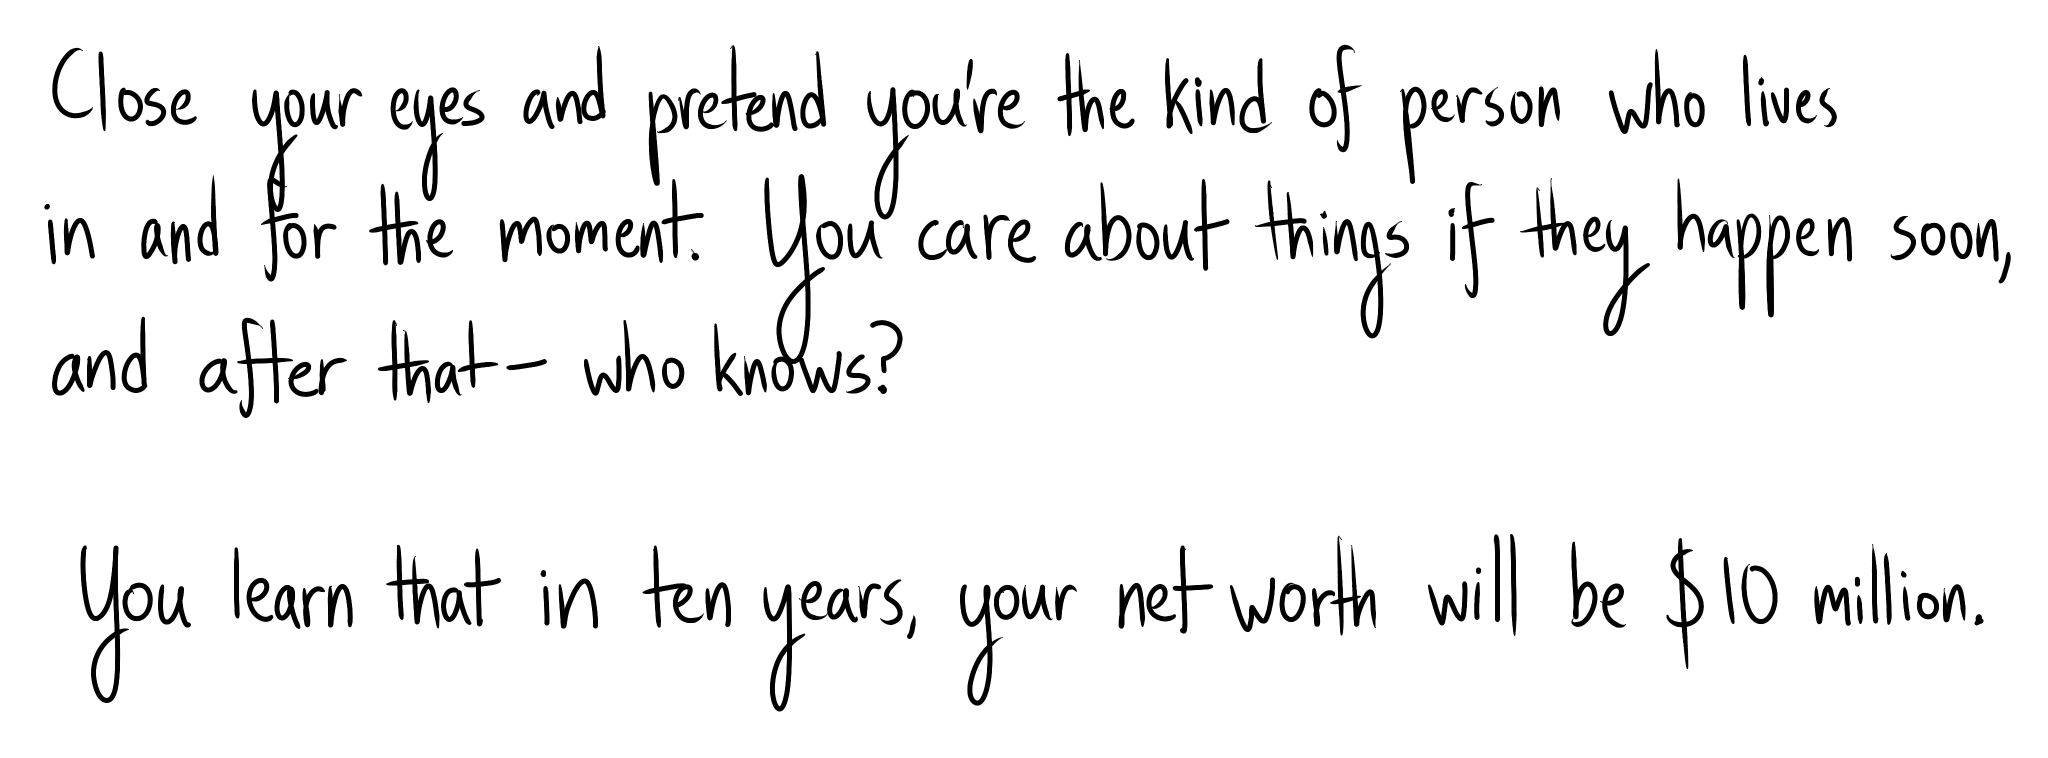 Close your eyes and pretend you're the kind of person who lives
in and for the moment. You care about things if they happen soon,
and after that – who knows?
You learn that in ten years, your net worth will be $10 million.